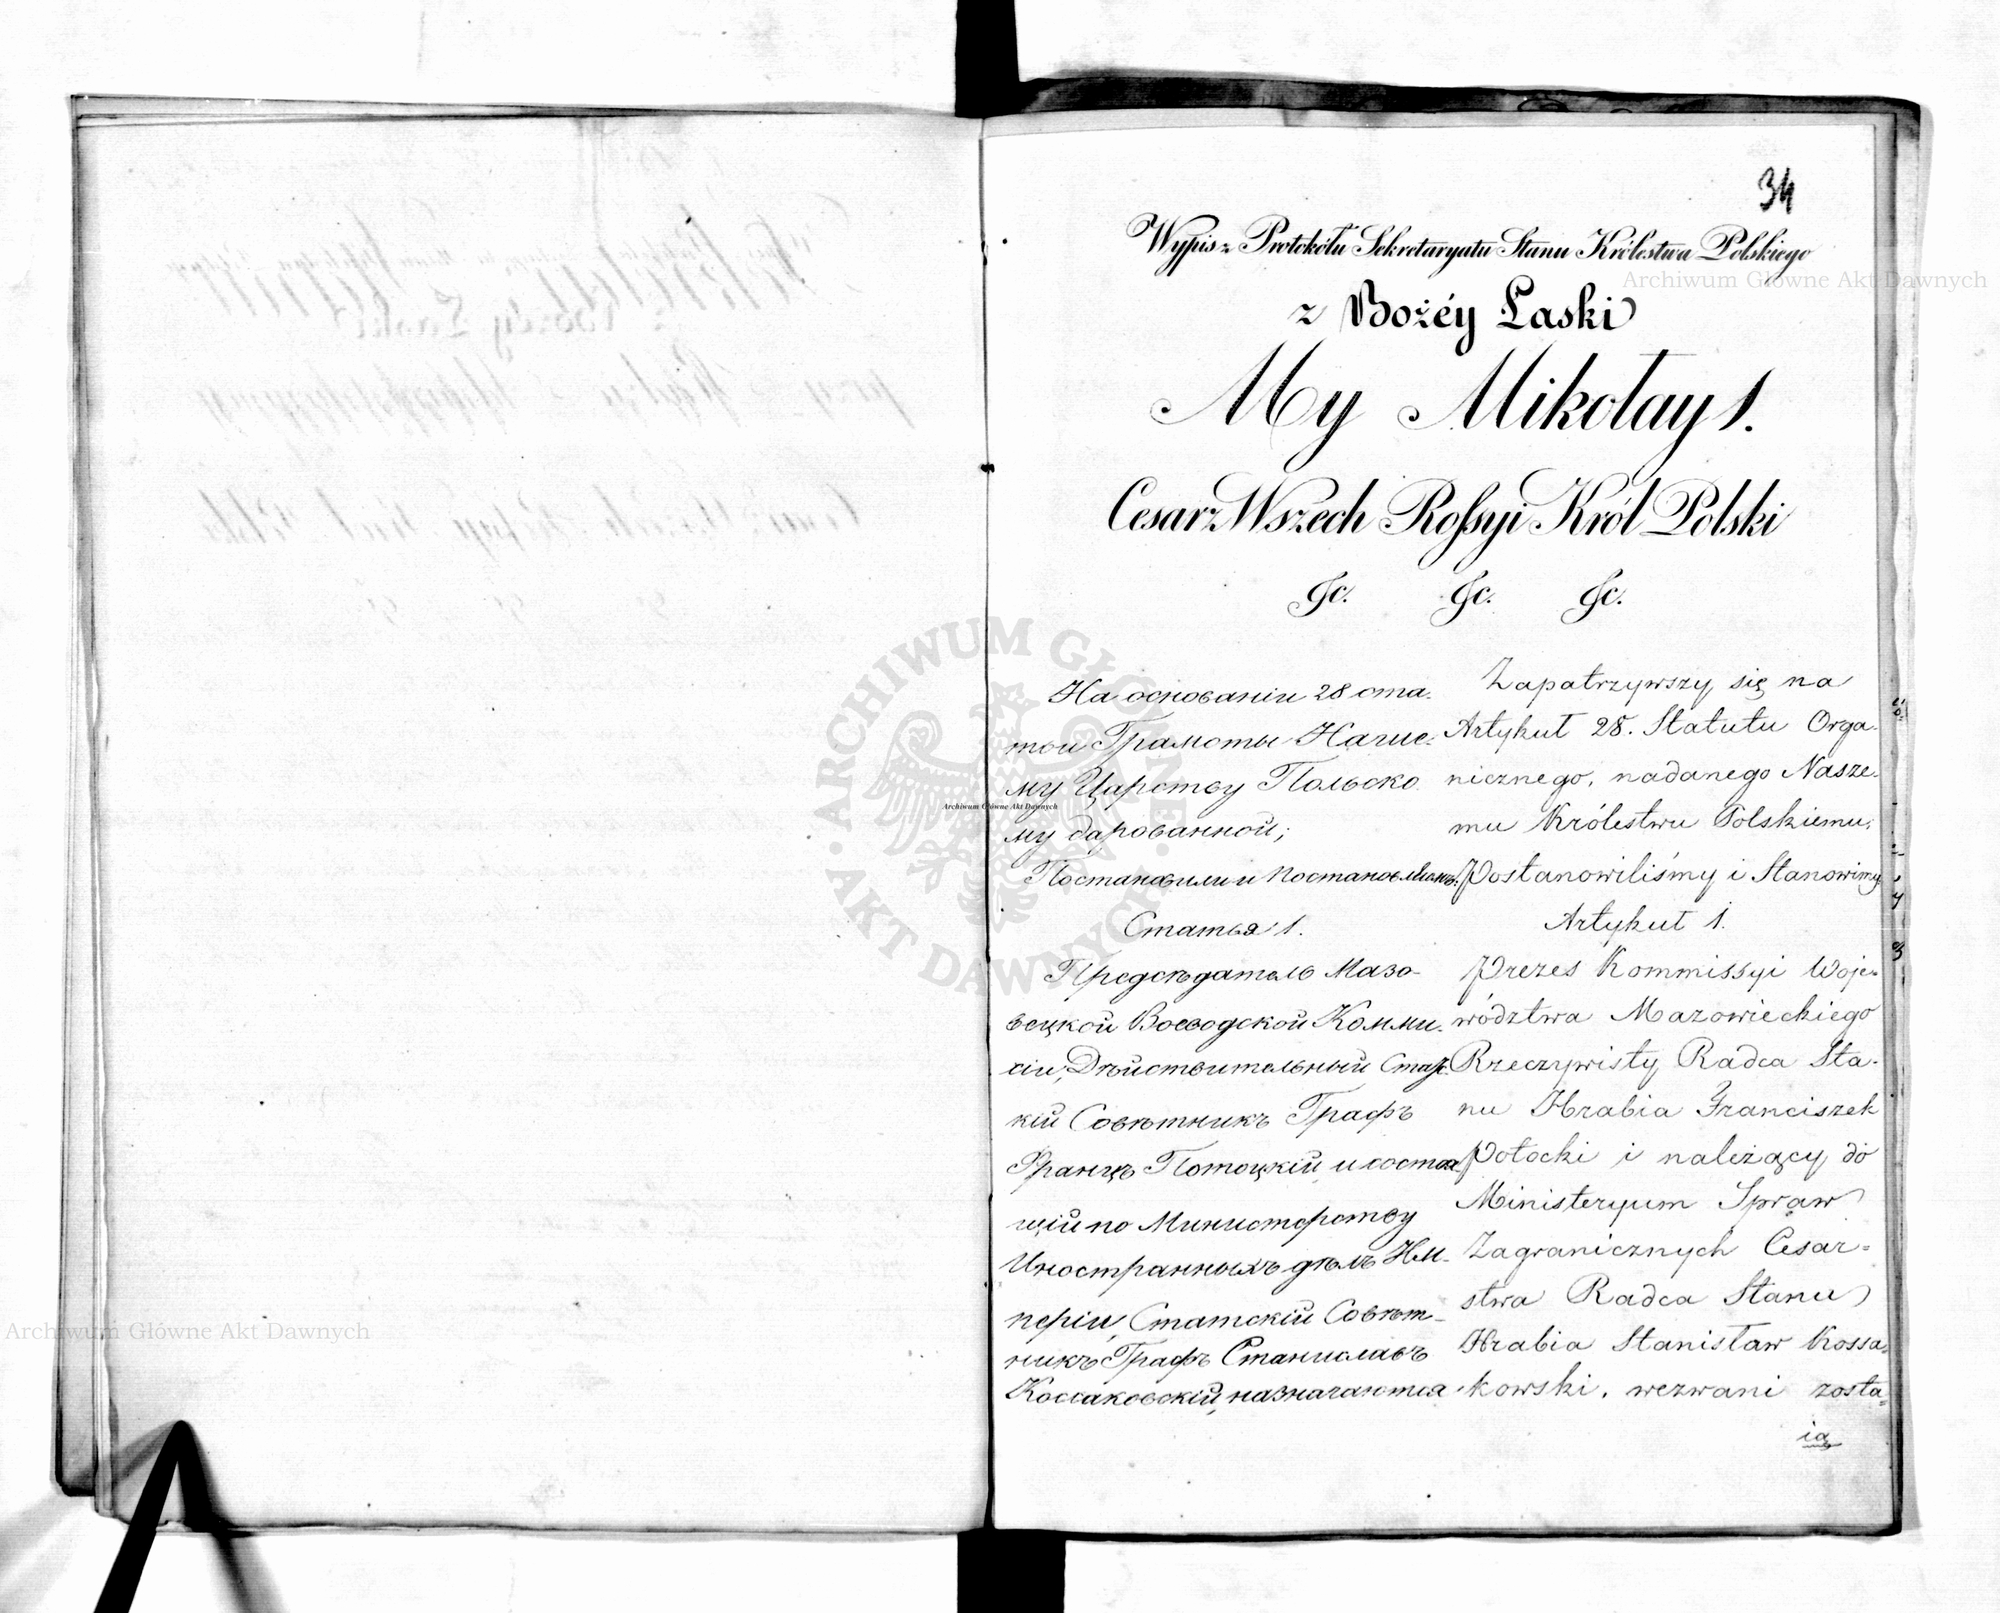 34
Wypis z Protokółu Sekretaryatu Stanu Królestwa Polskiego
z Bożéy Łaski
My Mikołay 1.
Cesarz Wszech Rossyi Król Polski
&c. &c. &c.
На основаніи 28 ста-
тьи Грамоты Наше-
му Царству Польско
му дарованной;
Постановили и постановляемъ:
Статья 1.
Предсѣдатель Мазо-
вецкой Воеводской Комми-
сіи, Дѣйствительный Статс-
кій Совѣтникъ Графъ
Францъ Потоцкій, и состоя
щій по Министерству
Иностранныхъ дѣлъ Им-
періи, Статскій Совѣт-
никъ Графъ Станиславъ
Коссаковскій, назначаются
Zapatrzywszy się na
Artykuł 28. Statutu Orga-
nicznego, nadanego Nasze-
mu Królestwu Polskiemu,
Postanowiliśmy i Stanowimy
Artykuł 1.
Prezes Kommissyi Woje-
wództwa Mazowieckiego
Rzeczywisty Radca Sta-
nu Hrabia Franciszek
Potocki i należący do
Ministeryum Spraw
Zagranicznych Cesar-
stwa Radca Stanu
Hrabia Stanisław Kossa-
kowski, wezwani zosta-
ią
Archiwum Główne Akt Dawnych
Archiwum Główne Akt Dawnych
Archiwum Główne Akt Dawnych
ARCHIWUM GŁÓWNE
AKT DAWNYCH